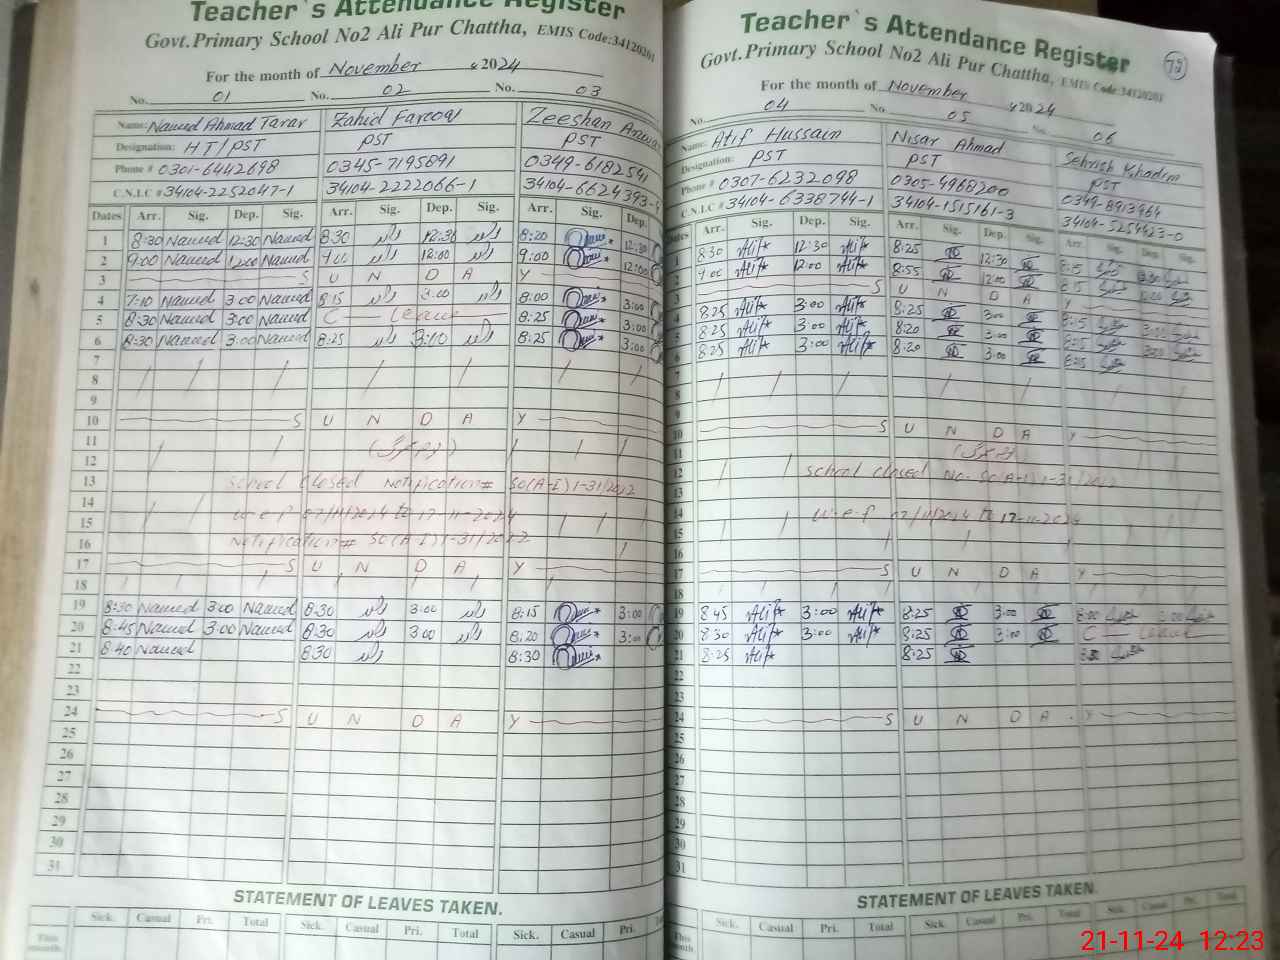 Teacher`s Attendance Register
Govt.Primary School No2 Ali Pur Chattha, EMIS Code:34120201
For the month of November 2024
No. 01 No. 02 No. 03
Name: Naveed Ahmad Tarar Zahid Farooq Zeeshan
Designation: HT/PST PST PST
Phone # 0301-6442698 0345-7195891 0349-6182541
C.N.I.C # 34104-2252047-1 34104-2222066-1 34104-6624393-
Dates Arr. Sig. Dep. Sig. Arr. Sig. Dep. Sig. Arr. Sig. Dep.
1 8:30 Naveed 12:30 Naveed 8:30 12:30 8:20 12:30
2 9:00 Naveed 12:00 Naveed 9:00 12:00 9:00 12:00
3 S U N D A Y
4 7:10 Naveed 3:00 Naveed 8:15 3:00 8:00 3:00
5 8:30 Naveed 3:00 Naveed C — Leave 8:25 3:00
6 8:30 Naveed 3:00 Naveed 8:25 3:00 8:25 3:00
7
8
9
10 S U N D A Y
11
12
13 School Closed Notification# SO(A-I)1-31/2012
14 w.e.f 07/11/2024 to 17-11-2024
15
16 Notification# SO(A-I)1-31/2012
17 S U N D A Y
18
19 8:30 Naveed 3:00 Naveed 8:30 3:00 8:15 3:00
20 8:45 Naveed 3:00 Naveed 8:30 3:00 8:20 3:00
21 8:40 Naveed 8:30 8:30
22
23
24 S U N D A Y
25
26
27
28
29
30
31
STATEMENT OF LEAVES TAKEN.
Sick. Casual Pri. Total Sick. Casual Pri. Total Sick. Casual Pri.
This month
Teacher`s Attendance Register
78
Govt.Primary School No2 Ali Pur Chattha, EMIS Code:34120201
For the month of November 2024
No. 04 No. 05 No. 06
Name: Atif Hussain Nisar Ahmad Sehrish Khadim
Designation: PST PST PST
Phone # 0307-6232098 0305-4968200 0349-8913464
C.N.I.C # 34104-6338744-1 34104-1515161-3 34104-5254423-0
Dates Arr. Sig. Dep. Sig. Arr. Sig. Dep. Sig. Arr. Sig. Dep. Sig.
1 8:30 Atif 12:30 Atif 8:25 12:30 8:15
2 9:00 Atif 12:00 Atif 8:55 12:00 8:15
3 S U N D A Y
4 8:25 Atif 3:00 Atif 8:25 3:00 8:15 3:00
5 8:25 Atif 3:00 Atif 8:20 3:00 8:15 3:00
6 8:25 Atif 3:00 Atif 8:20 3:00 8:15
7
8
9
10 S U N D A Y
11
12 School Closed No. SO(A-I)1-31/2012
13
14 w.e.f 07/11/2024 to 17-11-2024
15
16
17 S U N D A Y
18
19 8:45 Atif 3:00 Atif 8:25 3:00 8:00 3:00
20 8:30 Atif 3:00 Atif 8:25 3:00 C — Leave
21 8:25 Atif 8:25
22
23
24 S U N D A Y
25
26
27
28
29
30
31
STATEMENT OF LEAVES TAKEN.
Sick. Casual Pri. Total Sick Casual Pri. Total Sick. Casual Pri. Total
This month
21-11-24 12:23